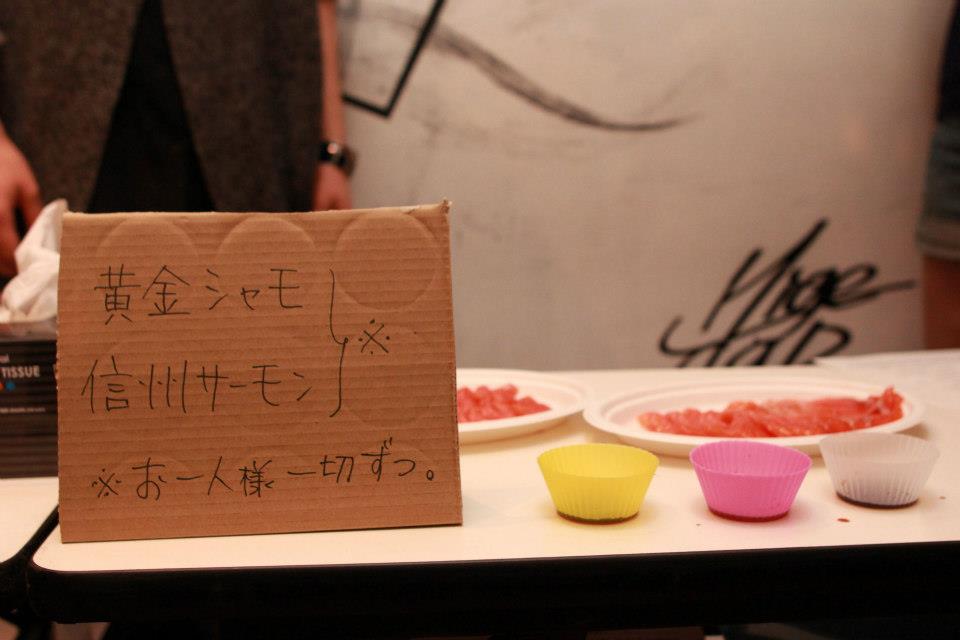 黄金シャモ
※
信州サーモン
※お一人様一切ずつ。
TISSUE